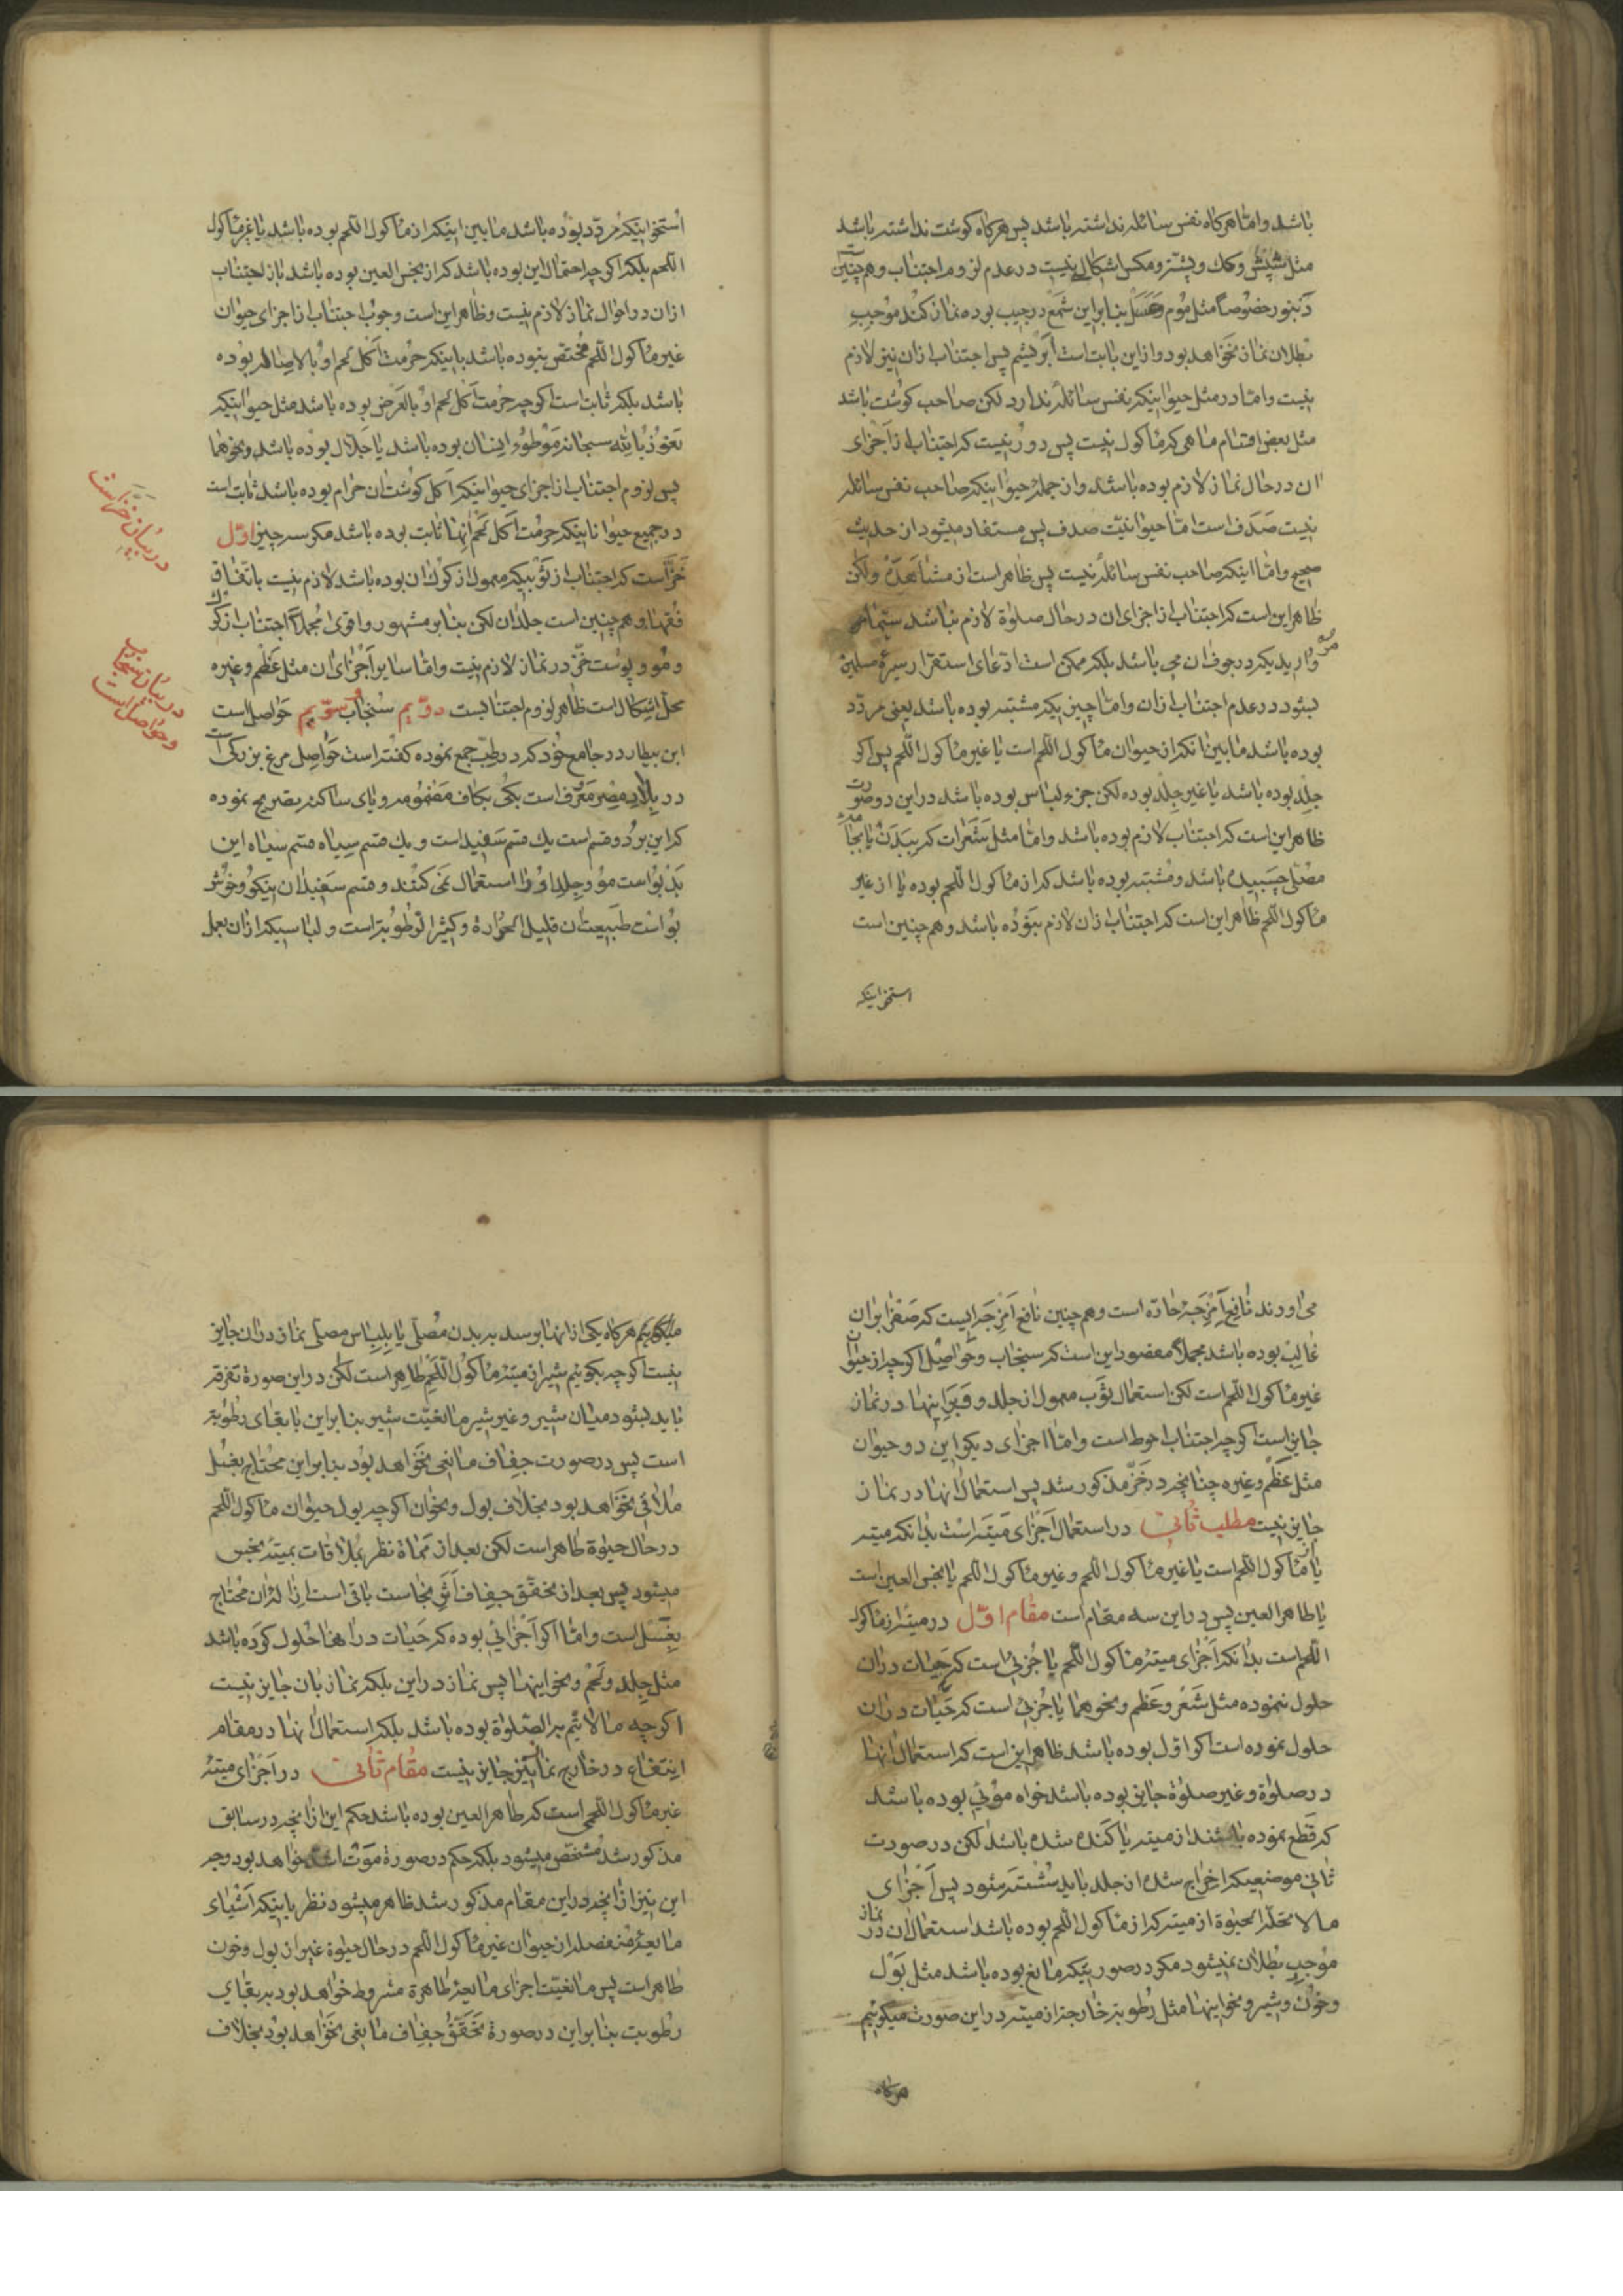 باشد و اما هرکاه نفس سائله نداشته باشد پس هرکاه کوشت نداشته باشد
مثل شپش و کک و پشه و مکس اشکالی نیست در عدم لزوم اجتناب و هم چنین است
زنبور خصوصاً مثل موم و عسل بنابراین شمع در جیب بوده نماز کند موجب
بطلان نماز نخواهد بود و از این بابت است ابریشم پس اجتناب از ان نیز لازم
نیست و اما در مثل حیوانیکه نفس سائله ندارد لکن صاحب کوشت باشد
مثل بعض اقسام ماهی که مأکول نیست پس دور نیست که اجتناب از اجزای
ان در حال نماز لازم بوده باشد و از جمله حیوانیکه صاحب نفس سائله
نیست صدف است اما حیوانیّت صدف پس مستفاد میشود از حدیث
صحیح و اما اینکه صاحب نفس سائله نیست پس ظاهر است از مشاهده ولکن
ظاهر این است که اجتناب از اجزای ان در حال صلوة لازم نباشد سیّما
مرواریدیکه در جوف ان می باشد بلکه ممکن است ادّعای استقرار سیرۀ مسلمین
بشود در عدم اجتناب از ان و اما چیزیکه مشتبه بوده باشد یعنی مردّد
بوده باشد ما بین انکه از حیوان مأکول اللحم است یا غیر مأکول اللحم پس اکر
جلد بوده باشد یا غیر جلد بوده لکن جزء لباس بوده باشد در این دو صورت
ظاهر این است که اجتناب لازم بوده باشد و اما مثل شعرات که ببدن یا بجامه
مصلّی چسبیده باشد و مشتبه بوده باشد که از مأکول اللحم بوده یا از غیر
مأکول اللحم ظاهر این است که اجتناب از ان لازم نبوده باشد و هم چنین است
استخوانیکه
استخوانیکه مردّد بوده باشد ما بین اینکه از مأکول اللحم بوده باشد یا غیر مأکول
اللحم بلکه اکرچه احتمال این بوده باشد که از نجس العین بوده باشد باز اجتناب
از ان در احوال نماز لازم نیست و ظاهر این است وجوب اجتناب از اجزای حیوان
غیر مأکول اللحم مختص نبوده باشد باینکه حرمت اکل لحم او بالاصاله بوده
باشد بلکه ثابت است اکرچه حرمت اکل لحم او بالعرض بوده باشد مثل حیوانیکه
نعوذ بالله سبحانه موطوء انسان بوده باشد یا جلّال بوده باشد و نحوهما
پس لزوم اجتناب از اجزای حیوانیکه اکل کوشت ان حرام بوده باشد ثابت است
در جمیع حیواناتیکه حرمت اکل لحم انها ثابت بوده باشد مکر سه چیز اوّل
خزّ است که اجتناب از ثوبیکه معمول از کرک ان بوده باشد لازم نیست باتّفاق
فقها و هم چنین است جلد ان لکن بنابر مشهور و اقوی مجملاً اجتناب از کرک
و مو و پوست خزّ در نماز لازم نیست و اما سایر اجزای ان مثل عظم و غیره
محلّ اشکال است ظاهر لزوم اجتنابست دوّیم سنجاب سوّیم حواصل است
ابن بیطار در جامع خود که در طبّ جمع نموده کفته است حواصل مرغ بزرکی است
در بلاد مصر معروف است بکی بکاف مضمومه و یای ساکنه تصریح نموده
که این بر دو قسم است یك قسم سفید است و یك قسم سیاه قسم سیاه این
بدبو است مو و جلد او را استعمال نمی کنند و قسم سفید ان نیکو و خوش
بو است طبیعت ان قلیل الحرارة و کثیر الرّطوبة است و لباسیکه از ان بعمل
در بیان خز است
در بیان سنجاب
و حواصل است
می اورند نافع امزجۀ حارّه است و هم چنین نافع امزجه ایست که صفرا بران
غالب بوده باشد مجملاً مقصود این است که سنجاب و حواصل اکرچه از حیوان
غیر مأکول اللحم است لکن استعمال ثوب معمول از جلد و وبر اینها در نماز
جایز است اکرچه اجتناب احوط است و اما اجزای دیکر این دو حیوان
مثل عظم و غیره چنانچه در خزّ مذکور شد پس استعمال انها در نماز
جایز نیست مطلب ثانی در استعمال اجزای میته است بدانکه میته
یا مأکول اللحم است یا غیر مأکول اللحم و غیر مأکول اللحم یا نجس العین است
یا طاهر العین پس در این سه مقام است مقام اوّل در میته از مأکول
اللحم است بدانکه اجزای میته مأکول اللحم یا جزئی است که حیات دران
حلول ننموده مثل شعر و عظم و نحوهما یا جزئی است که حیات دران
حلول نموده است اکر اول بوده باشد ظاهر این است که استعمال انها
در صلوة و غیر صلوة جایز بوده باشد خواه موئی بوده باشد
که قطع نموده باشند از میته یا کنده شده باشد لکن در صورت
ثانی موضعیکه اخراج شده از جلد باید شسته شود پس اجزای
ما لا تحلّه الحیوة از میته که از مأکول اللحم بوده باشد استعمال ان در نماز
موجب بطلان نمیشود مکر در صورتیکه مایع بوده باشد مثل بول
و خون و شیر و نحو اینها مثل رطوبة خارجه از میته در این صورت میکوئیم
هرکاه
میکوئیم هرکاه یکی از انها برسد به بدن مصلّی یا بلباس مصلّی نماز دران جایز
نیست اکرچه بکوئیم شیر از میته مأکول اللحم طاهر است لکن در این صورة تفرقه
باید بشود میان شیر و غیر شیر مانعیّت شیر بنابراین با بقای رطوبة
است پس در صورت جفاف مانعی نخواهد بود بنابراین محتاج بغسل
ملاقی نخواهد بود بخلاف بول و نحو ان اکرچه بول حیوان مأکول اللحم
در حال حیوة طاهر است لکن بعد از مماة نظر بملاقات بمیته نجس
میشود پس بعد از تحقّق جفاف اثر نجاست باقی است ازالۀ ان محتاج
بغسل است و اما اکر اجزائی بوده که حیات در انها حلول کرده باشد
مثل جلد و لحم و نحو اینها پس نماز در این بلکه نماز بان جایز نیست
اکرچه ما لا یتمّ به الصّلوة بوده باشد بلکه استعمال انها در مقام
انتفاع در خارج نماز نیز جایز نیست مقام ثانی در اجزای میته
غیر مأکول اللحمی است که طاهر العین بوده باشد حکم این از انچه در سابق
مذکور شد مشخص میشود بلکه حکم در صورة موت اشدّ خواهد بود وجه
این نیز از انچه در این مقام مذکور شد ظاهر میشود نظر باینکه اشیاء
مایعۀ منفصله از حیوان غیر مأکول اللحم در حال حیوة غیر از بول و خون
طاهر است پس مانعیّت اجزای مایعۀ طاهرة مشروط خواهد بود به بقای
رطوبت بنابراین در صورة تحقّق جفاف مانعی نخواهد بود بخلاف